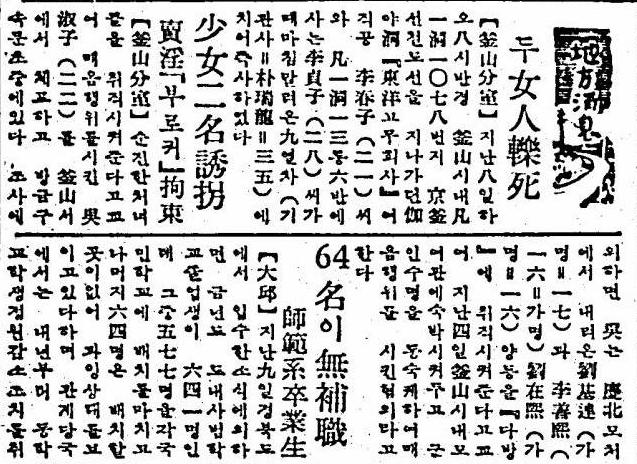 地方消息
두女人轢死
【釜山分室】지난八일하
오八시반경 釜山시내凡
一洞一○七八번지 京釜
선선도선을 지나가던伽
야洞『東洋고무회사』여
직공 李春子(二一)씨
와 凡一洞一三동六반에
사는李貞子(二八)씨가
때마침달려온九열차(기
관사=朴瑞龍=三五)에
치어즉사하였다
少女二名誘拐
賣淫「부로커」拘束
【釜山分室】순진한처녀
들을 위직시켜준다고교
여 매음행위를시킨 吳
淑子(二二)를 釜山서
에서 체포하고 방금구
속문초중에있다 조사에
외하면 吳는 慶北모처
에서 내려온劉基連(가
명=一七)과 李善熙(
一六=가명)劉在熙(가
명=一六)양등을『다방
』에 위직시켜준다고교
여 지난四일釜山시내모
여관에숙박시켜주고 군
인수명을 동숙케하여매
음행위를 시킨혐의라고
한다
64名이無補職
師範系卒業生
【大邱】지난九일경북도
에서 입수한소식에의하
면 금년도 도내사범학
교졸업생이 六四一명인
데 그중五七七명은각국
민학교에 배치를마치고
나머지六四명은 배치할
곳이없어 과잉상태를보
이고있다하며 관계당국
에서는 내년부터 동학
교학생정원감소조치를취